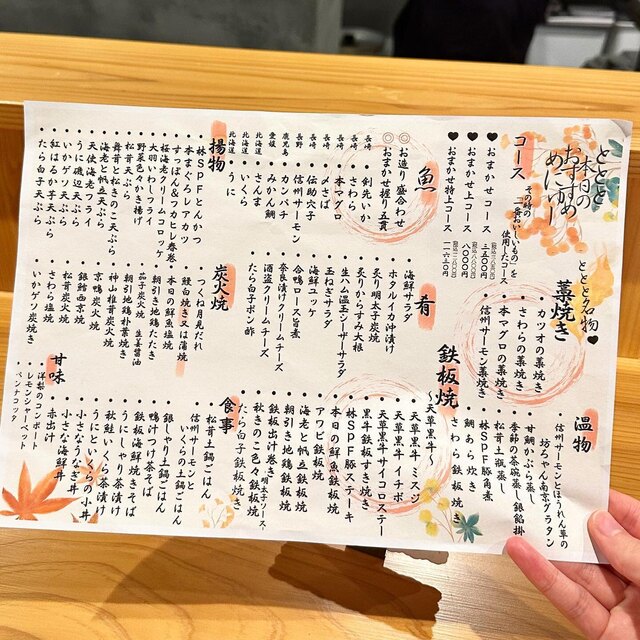 ととと
本日の
おすすめ
めにゅー
コース
その時の
「一番おいしいもの」を
使用したコース
♥おまかせコース
♥おまかせ上コース
♥おまかせ特上コース
魚
◎お造り盛合わせ
◎おまかせ握り五貫
•長崎 剣先いか
•長崎 さわら
•長崎 本マグロ
•長崎 〆さば
•長崎 伝助穴子
•長野 信州サーモン
•鹿児島 カンパチ
•愛媛 みかん鯛
•北海道 さんま
•北海道 いくら
•北海道 うに
揚物
•林SPFとんかつ
•本まぐろレアカツ
•すっぽん&フカヒレ春巻
•桜海老クリームコロッケ
•大羽いわしフライ
•野菜色々かき揚げ
•松茸天ぷら
•舞茸と松きのこ天ぷら
•海老と帆立天ぷら
•天使海老フライ
•うに磯辺天ぷら
•いかゲソ天ぷら
•紅はるか芋天ぷら
•たら白子天ぷら
ととと名物♥
藁焼き
•カツオの藁焼き
•さわらの藁焼き
•本マグロの藁焼き
•信州サーモン藁焼き
肴
•海鮮サラダ
•ホタルイカ沖漬け
•炙り明太子炭焼
•炙りからすみ大根
•生ハム温玉シーザーサラダ
•玉ねぎサラダ
•海鮮ユッケ
•合鴨ロース旨煮
•奈良漬けクリームチーズ
•酒盗クリームチーズ
•たら白子ポン酢
炭火焼
•つくね月見だれ
•鰻白焼き又は蒲焼
•本日の鮮魚塩焼
•朝引き地鶏たたき
•茄子炭火焼 生姜醤油
•朝引地鶏朴葉焼き
•神山椎茸炭火焼
•京鴨炭火焼
•銀鱈西京焼
•松茸炭火焼
•さわら塩焼
•いかゲソ炭焼き
温物
•信州サーモンとほうれん草の
坊ちゃん南京グラタン
•甘鯛かぶら蒸し
•季節の茶碗蒸し銀餡掛
•松茸土瓶蒸し
•林SPF豚角煮
•鯛あら炊き
•さわら鉄板焼き
鉄板焼
〜天草黒牛〜
•天草黒牛 ミスジ
•天草黒牛 イチボ
•天草黒牛サイコロステーキ
•黒牛鉄板すき焼き
•林SPF豚ステーキ
•本日の鮮魚鉄板焼
•アワビ鉄板焼
•海老と帆立鉄板焼
•朝引き地鶏鉄板焼
•鉄板出汁巻き明太子ソース
•秋きのこ色々鉄板焼
•たら白子鉄板焼き
食事
•松茸土鍋ごはん
•信州サーモンと
いくらの土鍋ごはん
•銀しゃり土鍋ごはん
•鴨汁つけ茶そば
•鉄板海鮮焼きそば
•うにしゃり茶漬け
•秋鮭いくら茶漬け
•うにといくらの小丼
•小さなうなぎ丼
•小さな海鮮丼
•赤出汁
甘味
•洋梨のコンポート
•レモンシャーベット
•ペンナコッタ